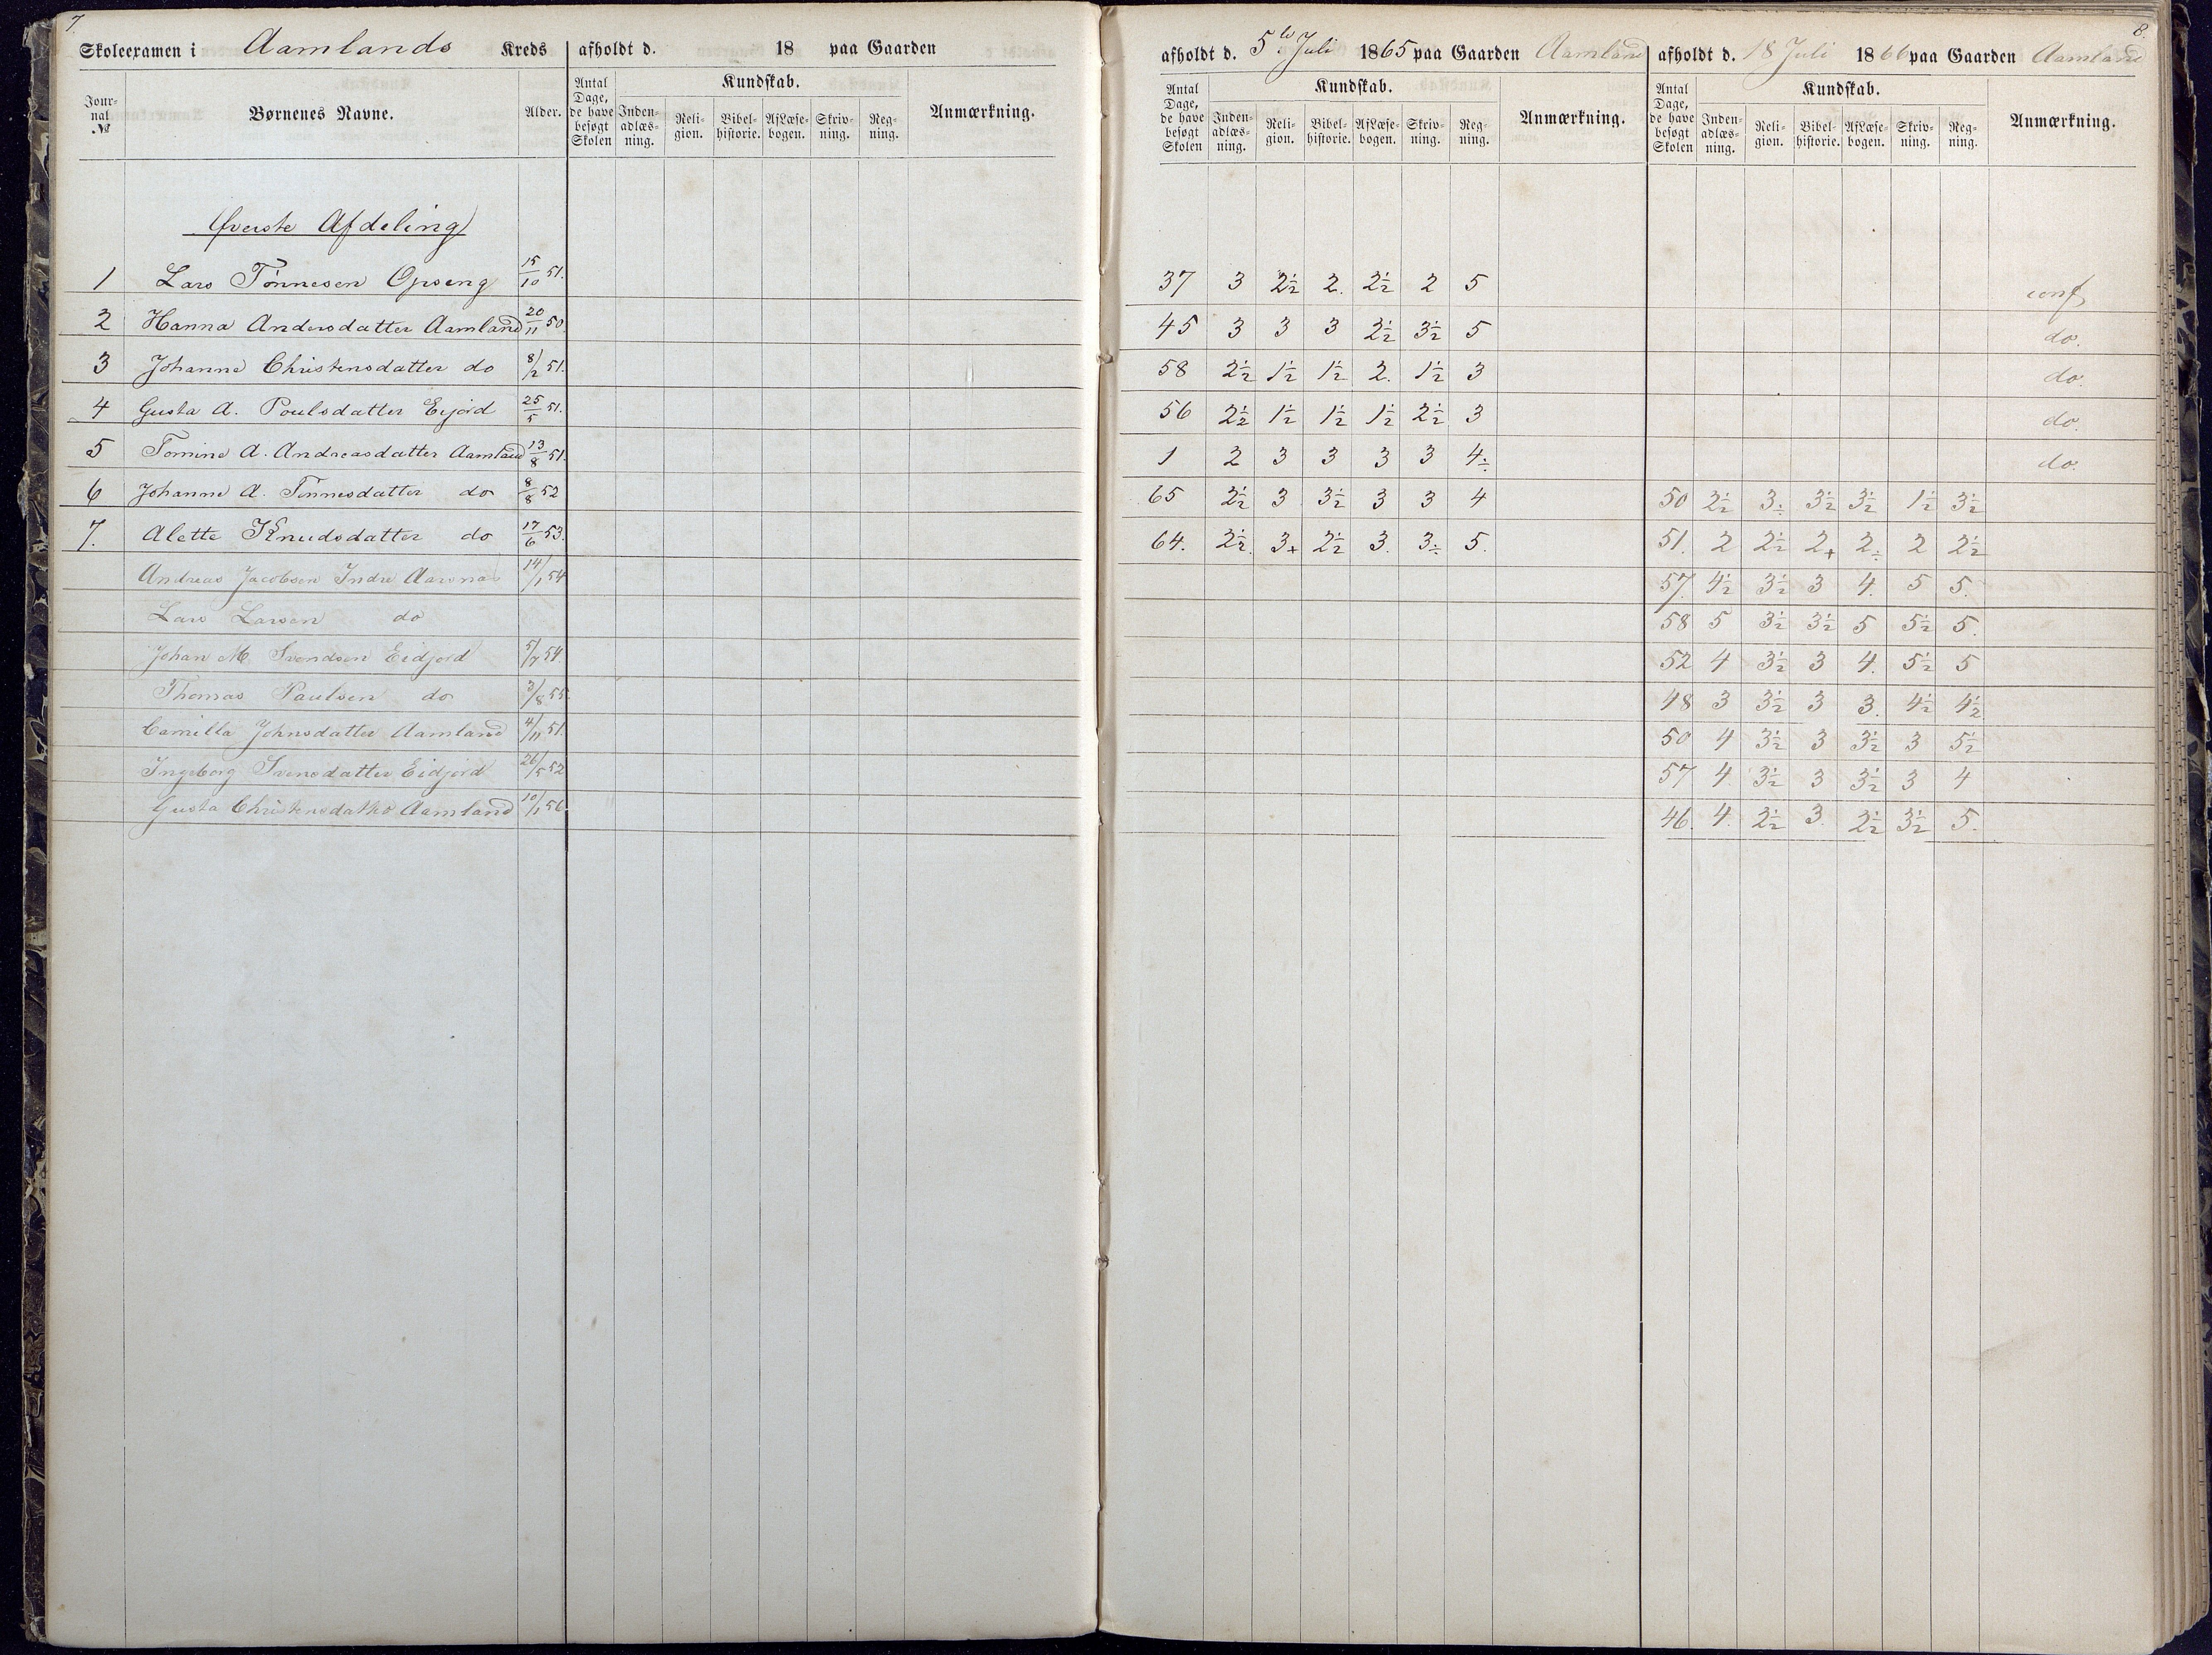 7.
Skoleexamen i Aamlands Kreds afholdt d. 18 paa Gaarden
Jour-nal № Børnenes Navne. Alder. Antal Dage, de have besøgt Skolen Kundskab. Inden-adlæs-ning. Reli-gion. Bibel-historie. Af Læse-bogen. Skriv-ning. Reg-ning. Anmærkning.
Øverste Afdeling
1 Lars Tønnesen Opseng 15/10 51.
2 Hanna Andersdatter Aamland 20/11 50.
3 Johanne Christensdatter do 8/2 51.
4 Gusta A. Poulsdatter Eijord 25/5 51.
5 Tomine A. Andreasdatter Aamland 13/8 51.
6 Johanne A. Tønnesdatter do 8/8 52
7. Alette Knudsdatter do 17/6 53.
Andreas Jacobsen Indre Aarsnas 14/1 54
Lars Larsen do
Johan M. Svendsen Eidjord 5/7 54.
Thomas Paulsen do 3/8 55.
Camilla Johnsdatter Aamland 4/11 51.
Ingeborg Svensdatter Eidjord 26/5 52
Gusta Christensdatter Aamland 10/1 56.
8.
afholdt d. 5te Juli 1865 paa Gaarden Aamland
Antal Dage, de have besøgt Skolen Kundskab. Inden-adlæs-ning. Reli-gion. Bibel-historie. Af Læse-bogen. Skriv-ning. Reg-ning. Anmærkning.
37 3 2½ 2. 2½ 2 5
45 3 3 3 2½ 3½ 5
58 2½ 1½ 1½ 2. 1½ 3
56 2½ 1½ 1½ 1½ 2½ 3
1 2 3 3 3 3 4÷
65 2½ 3 3½ 3 3 4
64. 2½. 3+ 2½ 3. 3÷ 5.
afholdt d. 18 Juli 1866 paa Gaarden Aamland
Antal Dage, de have besøgt Skolen Kundskab. Inden-adlæs-ning. Reli-gion. Bibel-historie. Af Læse-bogen. Skriv-ning. Reg-ning. Anmærkning.
conf
do.
do.
do.
do.
50 2½ 3÷ 3½ 3½ 1½ 3½
51. 2 2½ 2+ 2÷ 2 2½
57. 4½ 3½ 3 4. 5 5.
58 5 3½ 3½ 5 5½ 5.
52 4 3½ 3 4. 5½ 5
48 3 3½ 3 3. 4½ 4½
50 4 3½ 3 3½ 3 5½
57 4. 3½ 3 3½ 3 4
46. 4. 2½ 3. 2½ 3½ 5.